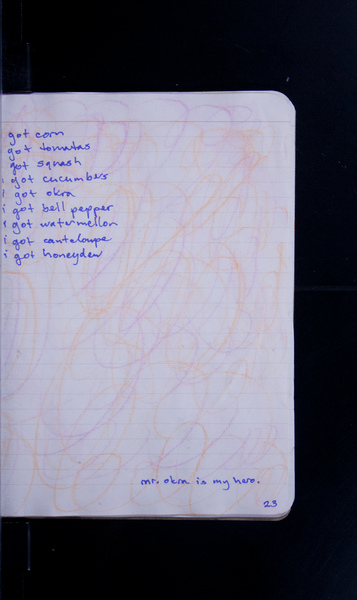 got corn
got tomatas
got squash
i got cucumbers
i got okra
i got bell pepper
i got watermellon
i got canteloupe
i got honeydew
mr. okra is my hero.
23